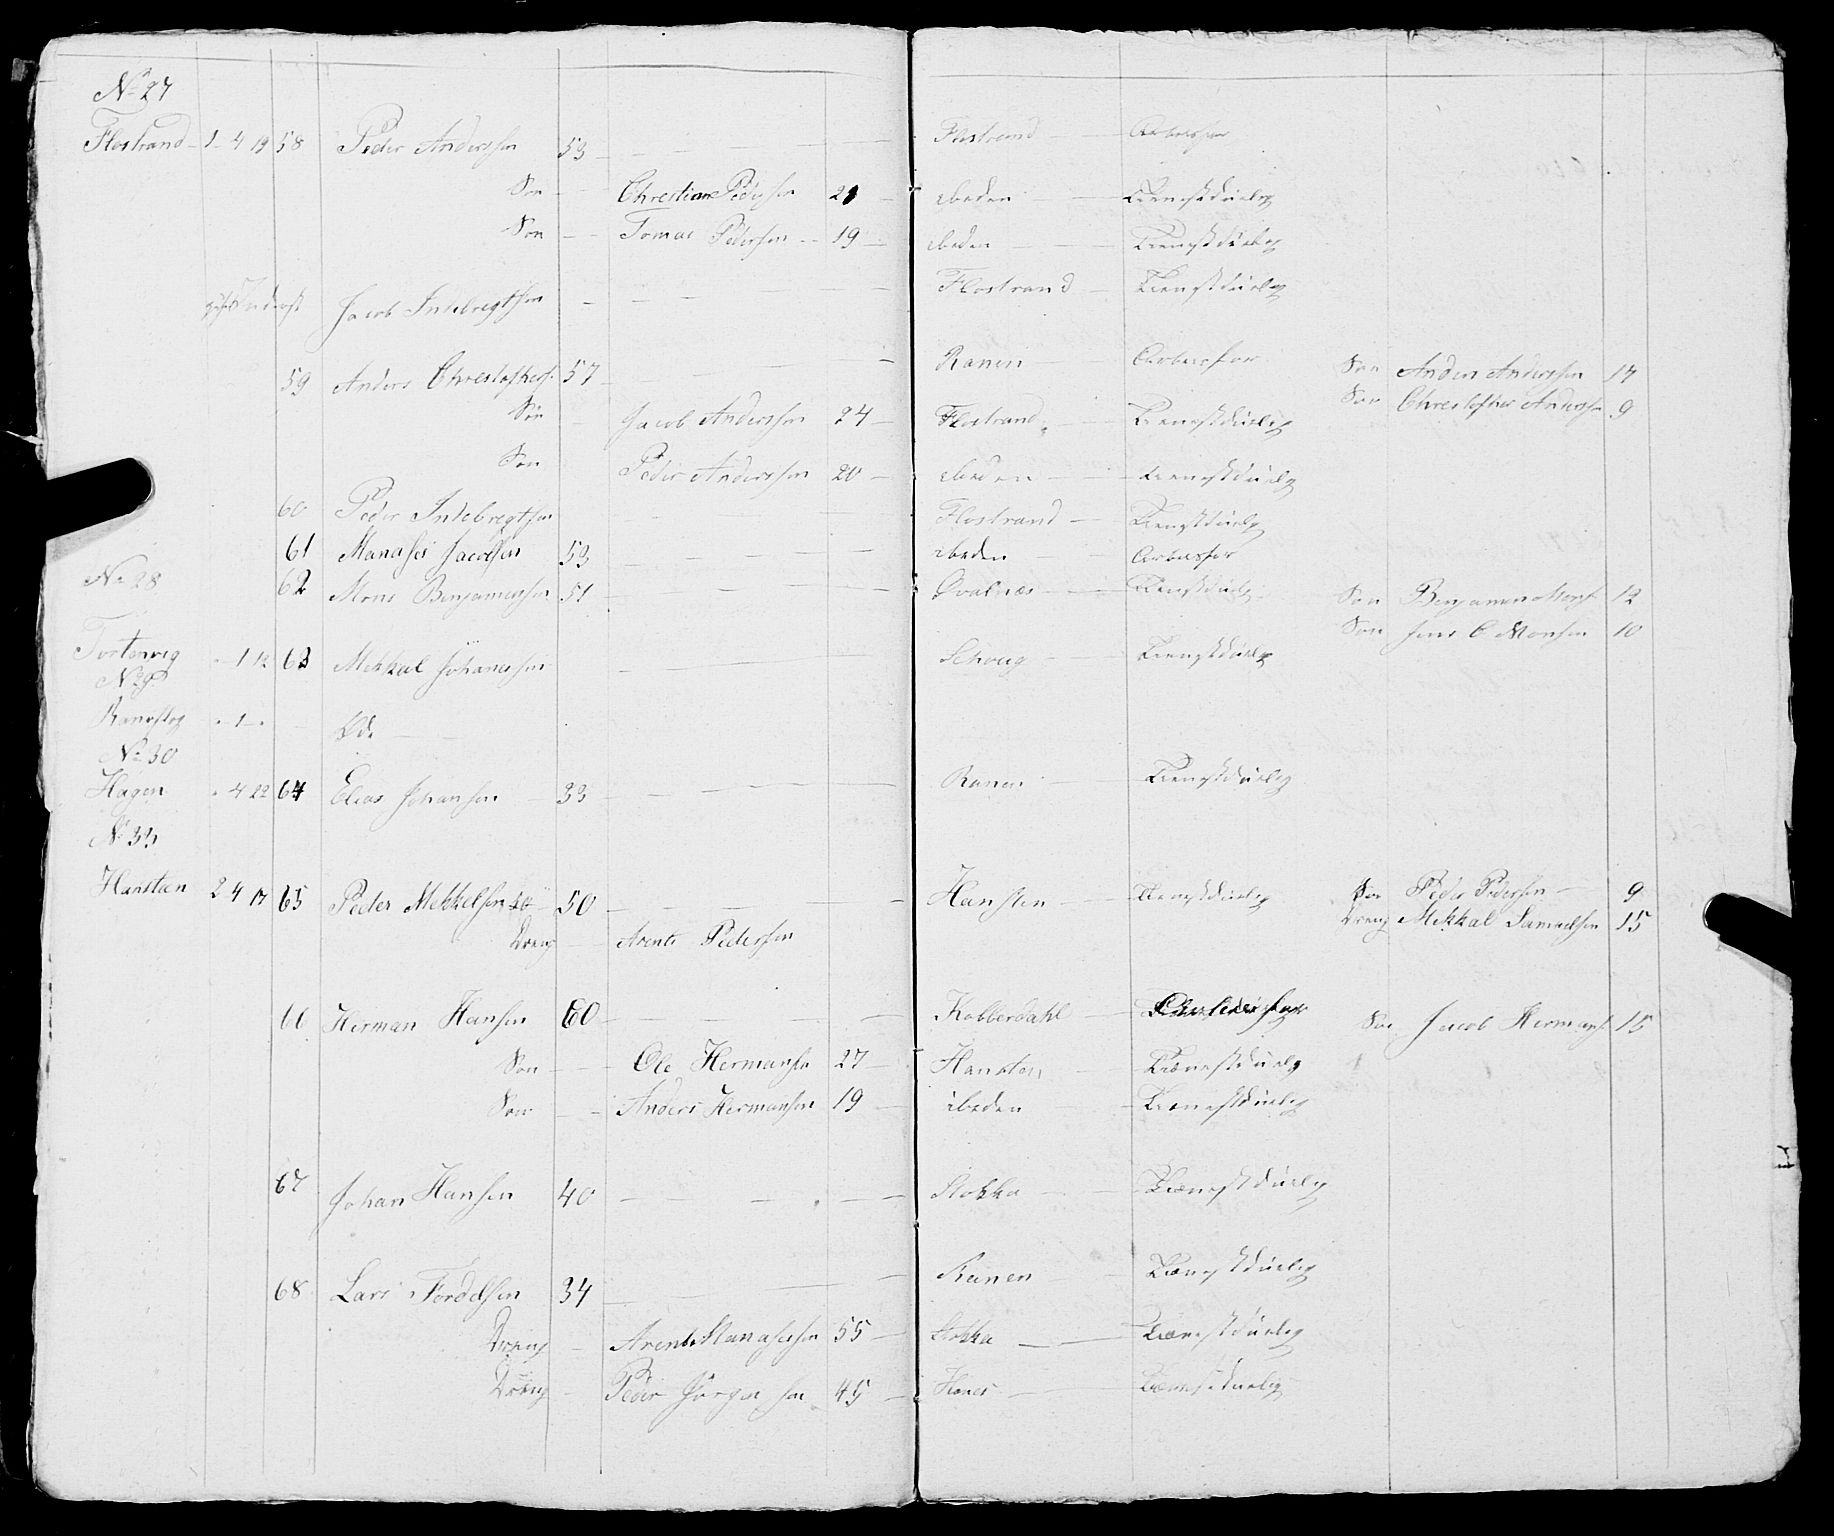 No 27
Flostrand 1 4 19 58 Peder Anderssen 53 Flostrand
Søn Christian Pedersen 21 ibeden Tienestduelig
Søn Tomas Pedersen 19 ibeden Tienestduelig
Jacob Intebregtsen Flostrand Tienestduelig
59 Anders Chrestophers. 57 Ranen Søn Anders Anderssen 17
Søn Chrestopher Anderssen 9
Søn Jacob Anderssen 24 Flostrand Tienestduelig
Søn Peder Anderssen 20 ibeden Tienestduelig
60 Peder Intebregtsen Flostrand Tienestduelig
61 Manases Jacobsen 53 ibeden
No 28
62 Mons Benjamensen 51 Qvalnæs Tienestduelig Søn Benjamen Mons. 12
Søn Jens C Monsen 10
Tortenvig 1 12 63 Mekkal Johanessen Tienestduelig
1 Øde
No 30
Hagen 4 22 64 Elias Johansen 33 Ranen Tienestduelig
No 33
Hanstæn 2 4 17 65 Peder Mekkelsen 50 Hansten Tienestduelig Søn Peder Pedersen 9
Dreng Mekkal Samuelsen 15
Dreng Arents Pedersen
66 Herman Hansen 60 Kobberdahl Søn Jacob Hermans. 15
Søn Ole Hermansen 27 Hansten Tienestduelig
Søn Anders Hermansen 19 ibeden Tienestduelig
67 Johan Hansen 40 Stokka Tienestduelig
68 Lars Tordelsen 34 Ranen Tienestduelig
Dreng Arents Manasessen 55 Stokka Tienestduelig
Dreng Peder Jørgensen 45 Tienestduelig